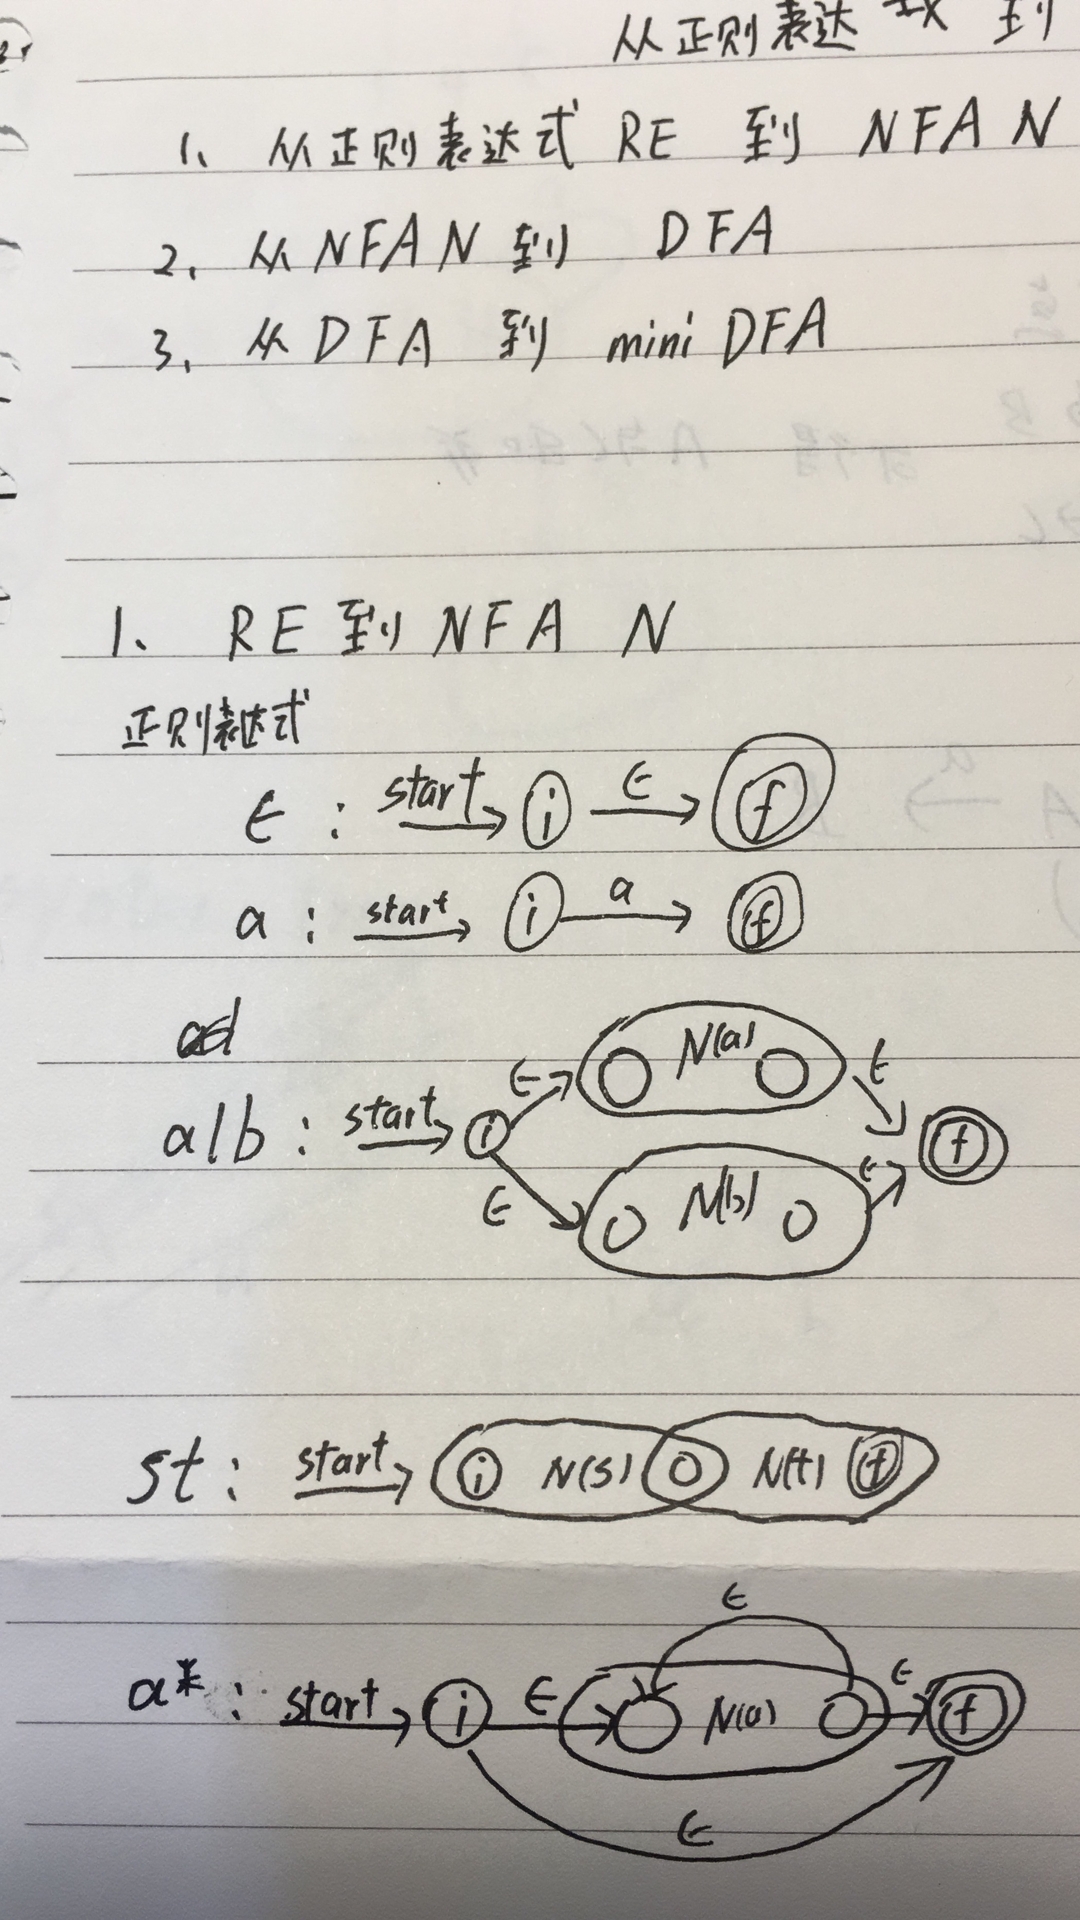 从正则表达式到
1、从正则表达式 RE 到 NFA N
2、从NFA N 到 DFA
3、从DFA 到 mini DFA
1、RE到NFA N
正则表达式
ϵ: start i ϵ f
a: start i a f
N(a)
ϵ ϵ
a|b: start i f
ϵ N(b) ϵ
st: start i N(s) N(t) f
ϵ
a*: start i ϵ N(a) ϵ f
ϵ